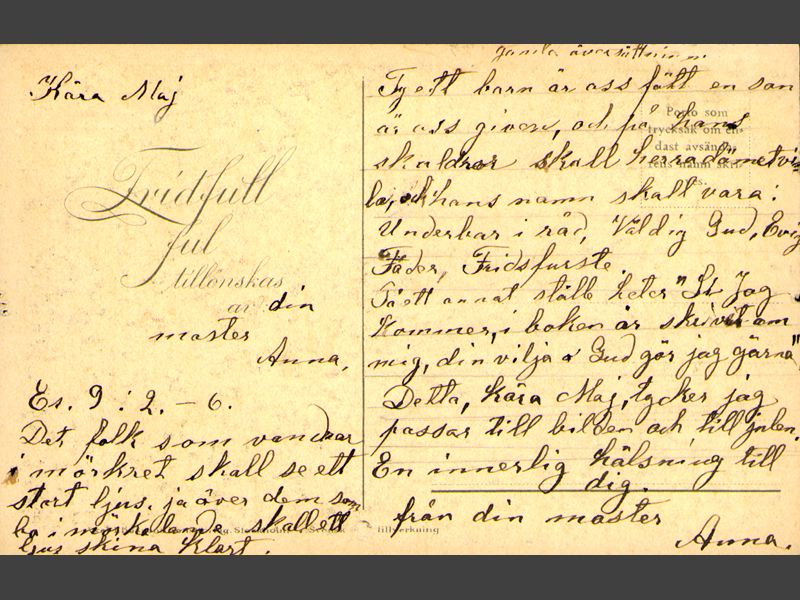 Kära Maj
Fridfull
Jul
tillönskas
av din
moster
Anna.
Es. 9 : 2. – 6.
Det folk som vandrar
i mörkret skall se ett
stort ljus, ja över dem som
bo i skall ett
ljus skina klart.
gamla översättningen.
Ty ett barn är oss fött en son
är oss given, och på hans
skuldror skall herradömet vi
la, och hans namn skall vara:
Underbar i råd, Väldig Gud, Evig
Fader, Fridsfurste.
På ett annat ställe heter "Se Jag
Kommer, i boken är skrivet om
mig, din vilja o Gud gör jag gärna"
Detta, Kära Maj, tycker jag
passar till bilden och till julen.
En innerlig hälsning till
dig.
från din moster
Anna.
Porto som
trycksak om en-
dast avsända-
rens namn skri-
tillverkning